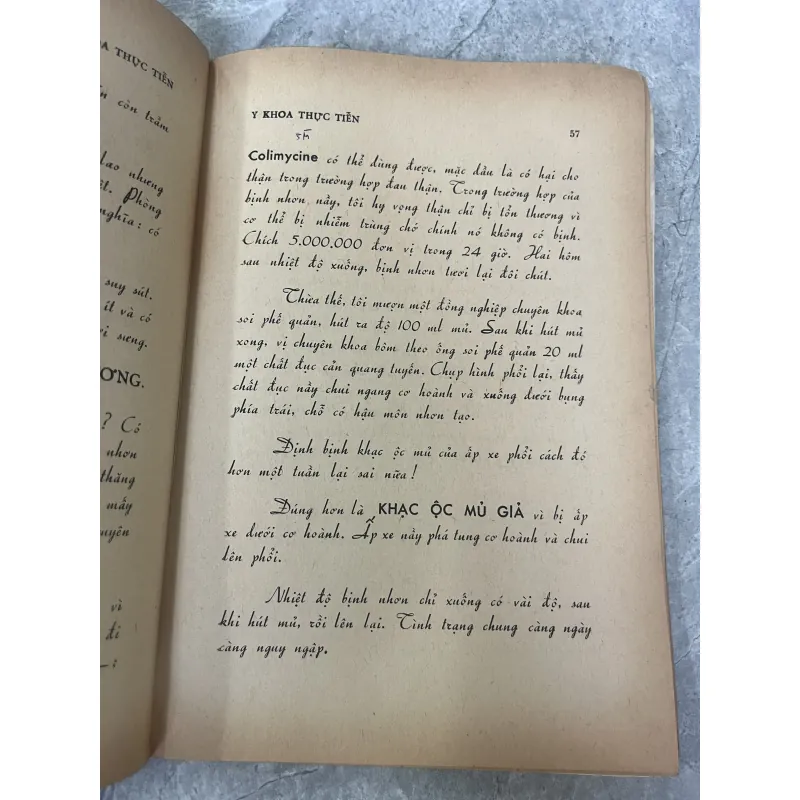 OA THỰC TIỄN
còn trầm
lao nhưng
Phòng
nghĩa: có
suy sút.
ít và có
sưng.
ƯƠNG.
? Có
nhơn
thăng
mấy
vì
đi
Y KHOA THỰC TIỄN
57
Colimycine có thể dùng được, mặc dầu là có hại cho
thận trong trường hợp đau thận. Trong trường hợp của
bịnh nhơn nầy, tôi hy vọng thận chỉ bị tổn thương vì
cơ thể bị nhiễm trùng chớ chính nó không có bịnh.
Chích 5.000.000 đơn vị trong 24 giờ. Hai hôm
sau nhiệt độ xuống, bịnh nhơn tươi lại đôi chút.
Thừa thế, tôi mượn một đồng nghiệp chuyên khoa
soi phế quản, hút ra độ 100 ml mủ. Sau khi hút mủ
xong, vị chuyên khoa bôm theo ống soi phế quản 20 ml
một chất đục cản quang tuyến. Chụp hình phổi lại, thấy
chất đục nầy chui ngang cơ hoành và xuống dưới bụng
phía trái, chỗ có hậu môn nhơn tạo.
Định bịnh khạc ộc mủ của áp xe phổi cách đó
hơn một tuần lại sai nữa!
Đúng hơn là KHẠC ỘC MỦ GIẢ vì bị áp
xe dưới cơ hoành. Áp xe nầy phá tung cơ hoành và chui
lên phổi.
Nhiệt độ bịnh nhơn chỉ xuống có vài độ, sau
khi hút mủ, rồi lên lại. Tình trạng chung càng ngày
càng nguy ngập.